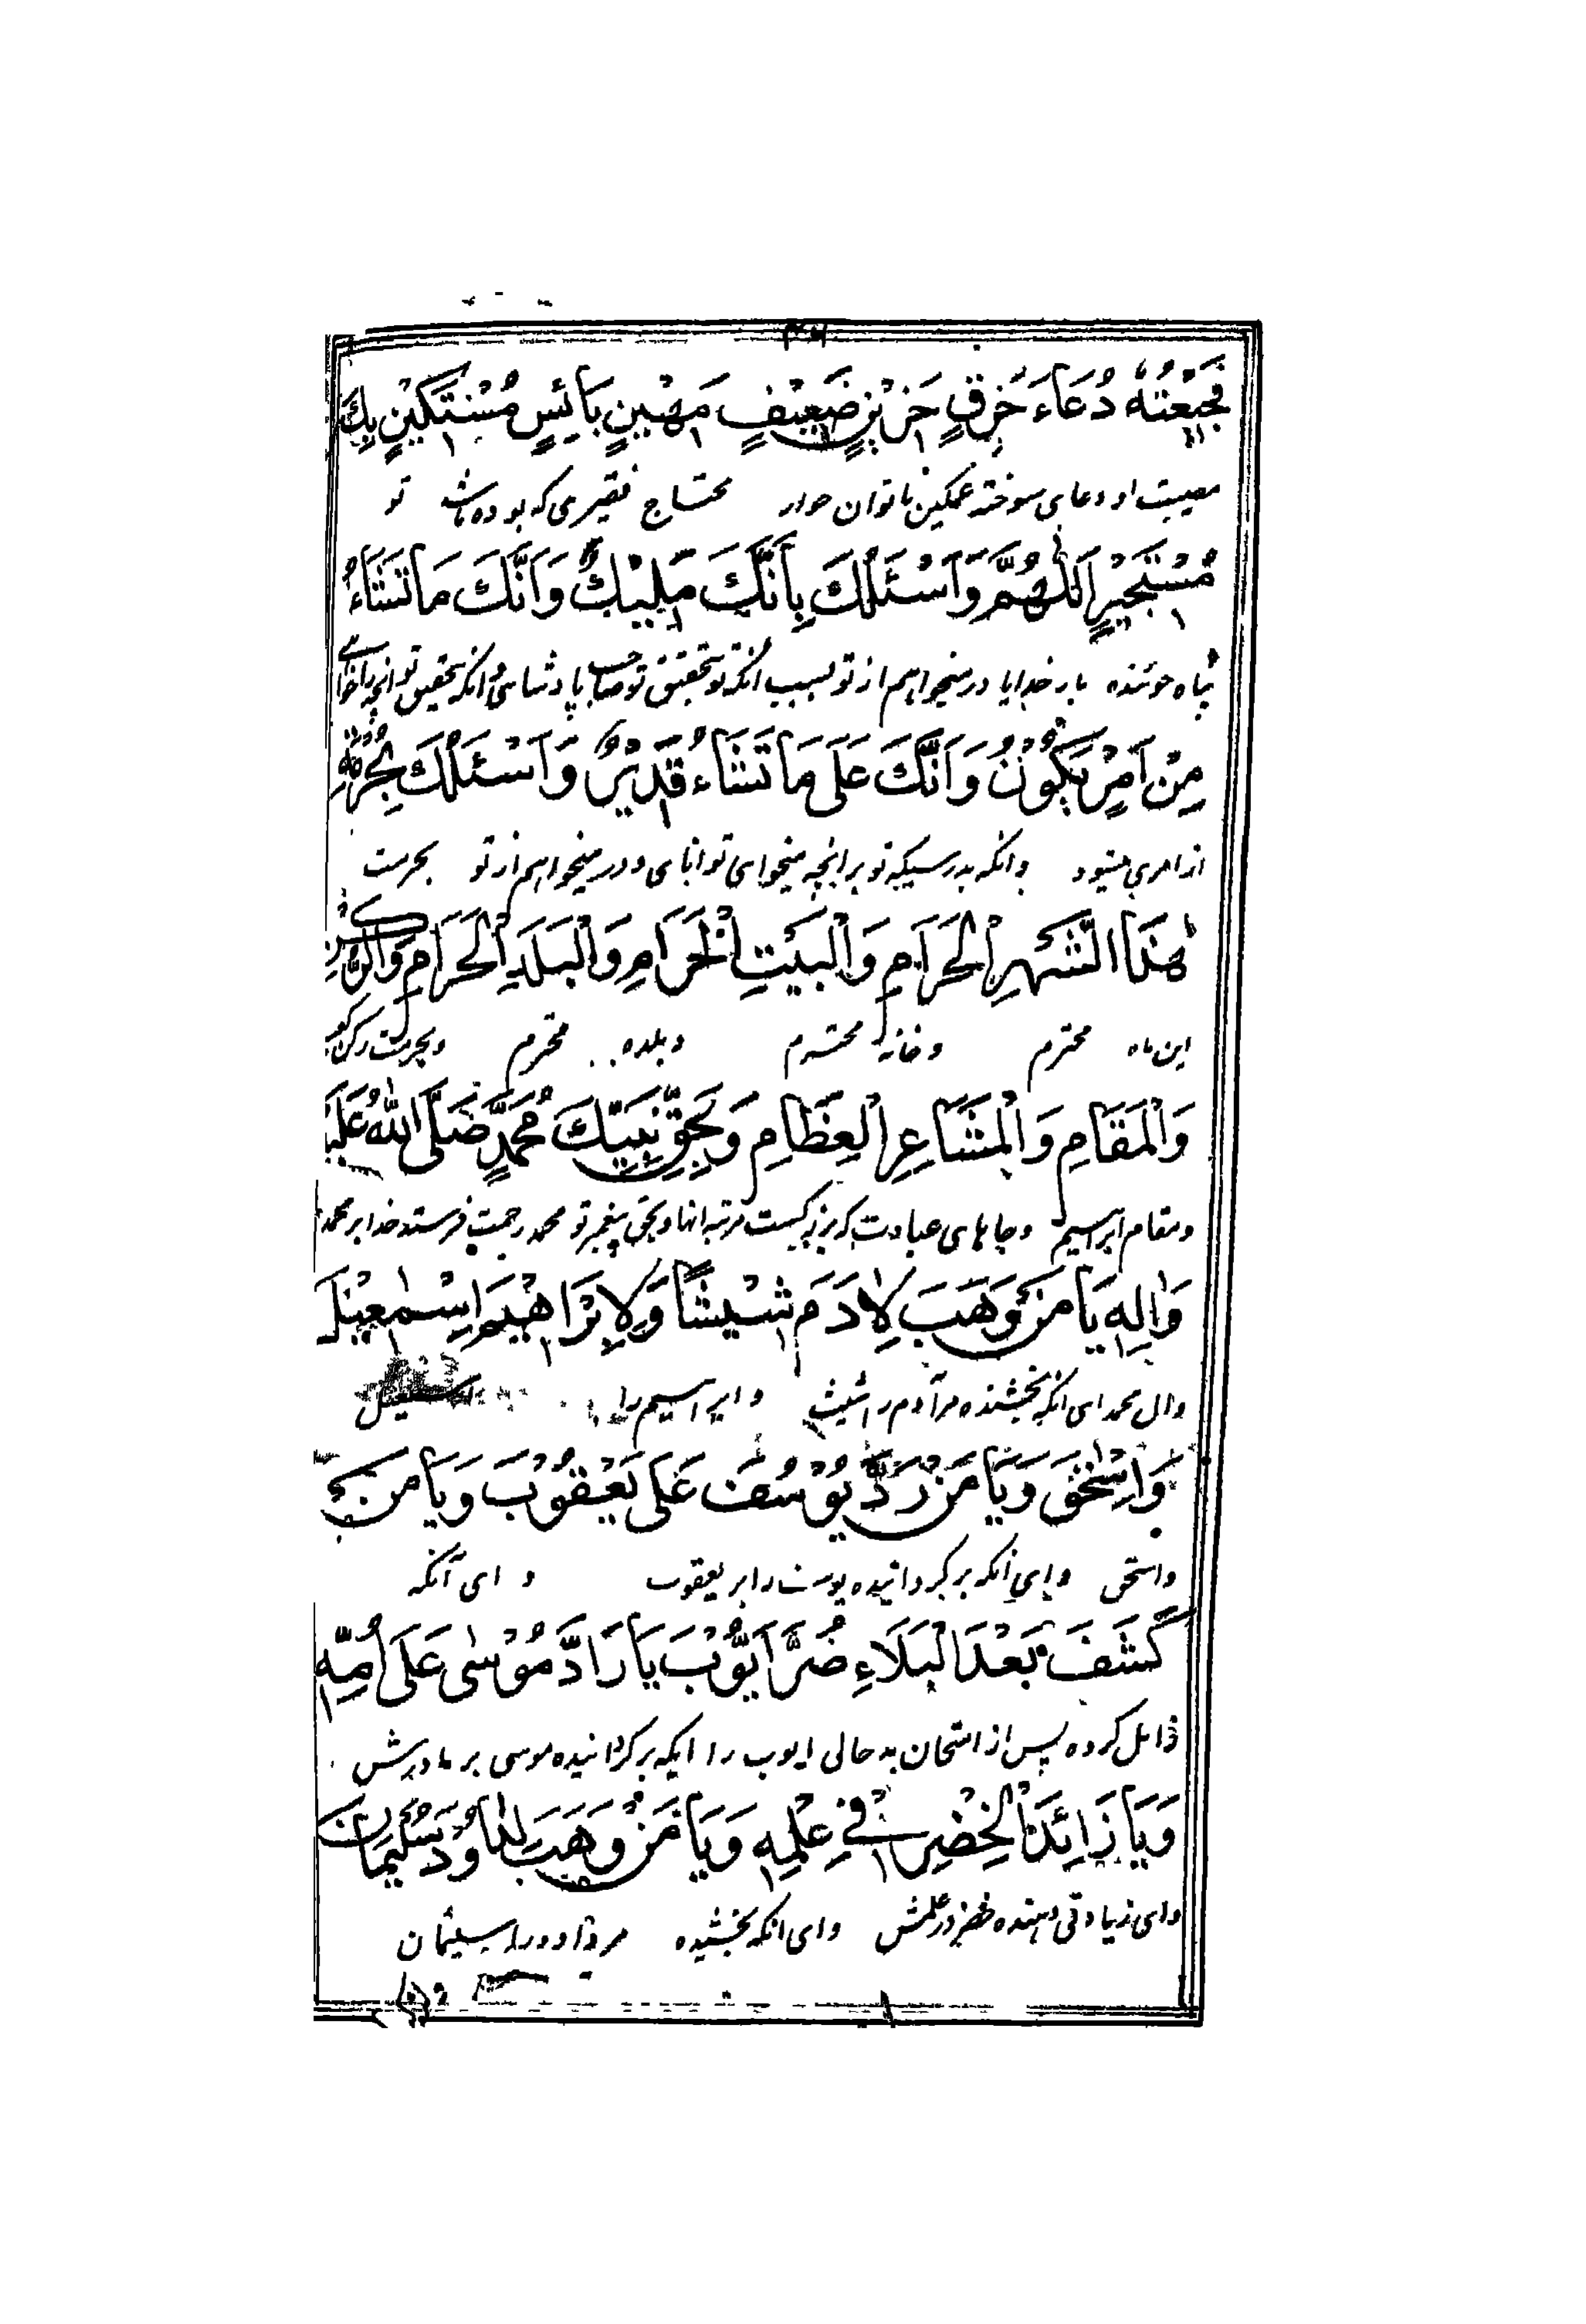 فَجِیْعَتُهُ دُعَاءَ حَرِقٍ حَزِیْنٍ ضَعِیْفٍ مَهِیْنٍ بَائِسٍ مُسْتَکِیْنٍ بِكَ
مصیبت او دعای سوخته غمکین ناتوان خوار محتاج فقیری که بوده باشد تو
مُسْتَجِیْرٍ اَللّٰهُمَّ وَاَسْئَلُكَ بِاَنَّكَ مَلِیْكٌ وَاَنَّكَ مَا تَشَاءُ
پناه جوینده بار خدایا و میخواهم از تو بسبب آنکه تو بتحقیق تو صاحب پادشاهی و انکه بتحقیق تو انچه
مِنْ اَمْرٍ یَکُوْنُ وَاَنَّكَ عَلٰی مَا تَشَاءُ قَدِیْرٌ وَاَسْئَلُكَ بِحُرْمَةِ
از امری میشود و انکه بدرستیکه تو بر انچه میخواهی توانای و میخواهم از تو بحرمت
هٰذَا الشَّهْرِ الْحَرَامِ وَالْبَیْتِ الْحَرَامِ وَالْبَلَدِ الْحَرَامِ وَالرُّکْنِ
این ماه محترم و خانه محترم و بلده محترم و بحرمت رکن
وَالْمَقَامِ وَالْمَشَاعِرِ الْعِظَامِ وَبِحَقِّ نَبِیِّكَ مُحَمَّدٍ صَلَّی اللّٰهُ عَلَیْهِ
و مقام ابراهیم و جاهای عبادت که بزرکست مرتبه انها و بحق پیغمبر تو محمد رحمت فرستد خدا بر محمد
وَاٰلِهٖ یَا مَنْ وَهَبَ لِاٰدَمَ شَیْثًا وَلِاِبْرَاهِیْمَ اِسْمٰعِیْلَ
وال محمد ای انکه بخشنده مر آدم را شیث و ابراهیم را اسمعیل
وَاِسْحٰقَ وَیَا مَنْ رَدَّ یُوْسُفَ عَلٰی یَعْقُوْبَ وَیَا مَنْ
واسحق و ای انکه بر کردانیده یوسف را بر یعقوب و ای آنکه
کَشَفَ بَعْدَ الْبَلَاءِ ضُرَّ اَیُّوْبَ یَا رَادَّ مُوْسٰی عَلٰی اُمِّهٖ
زائل کرده پس از امتحان بد حالی ایوب را ایکه بر کردانیده موسی بر مادرش
وَیَا زَائِدَ الْخِضْرِ فِیْ عِلْمِهٖ وَیَا مَنْ وَهَبَ لِدَاوُدَ سُلَیْمَانَ
وای زیادتی دهنده خضر در علمش وای انکه بخشیده مر داود را سلیمان